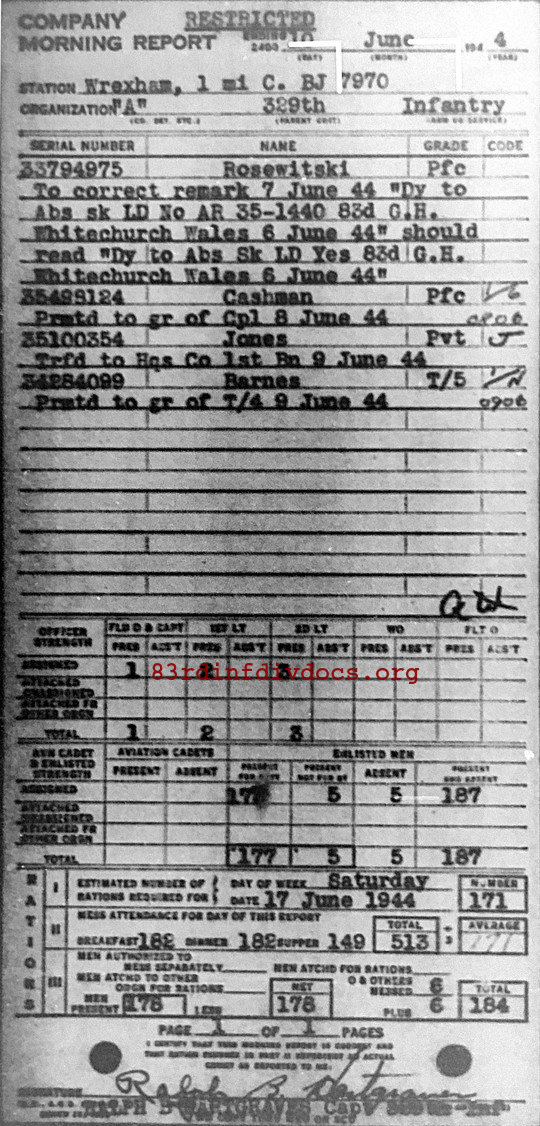 COMPANY RESTRICTED
MORNING REPORT ENDING 2400 10 June 194 4
(DAY) (MONTH) (YEAR)
STATION Wrexham, 1 mi C. BJ 7970
ORGANIZATION "A" 329th Infantry
(CO. DET. ETC.) (PARENT UNIT) (ARM OR SERVICE)
SERIAL NUMBER NAME GRADE CODE
33794975 Rosewitski Pfc
To correct remark 7 June 44 "Dy to
Abs sk LD No AR 35-1440 83d G.H.
Whitechurch Wales 6 June 44" should
read "Dy to Abs Sk LD Yes 83d G.H.
Whitechurch Wales 6 June 44"
35499124 Cashman Pfc
Prmtd to gr of Cpl 8 June 44 0906
35100354 Jones Pvt J
Trfd to Hqs Co 1st Bn 9 June 44
34284099 Barnes T/5
Prmtd to gr of T/4 9 June 44 0906
OFFICER STRENGTH FLD O & CAPT 1ST LT 2D LT WO FLT O
PRES ABS'T PRES ABS'T PRES ABS'T PRES ABS'T PRES ABS'T
ASSIGNED 1 2 3
83rdinfdivdocs.org
ATTACHED UNASSIGNED
ATTACHED FR OTHER ORGN
TOTAL 1 2 3
AVN CADET & ENLISTED STRENGTH AVIATION CADETS ENLISTED MEN
PRESENT ABSENT PRESENT FOR DUTY PRESENT NOT FOR DY ABSENT PRESENT AND ABSENT
ASSIGNED 177 5 5 187
ATTACHED UNASSIGNED
ATTACHED FR OTHER ORGN
TOTAL 177 5 5 187
RATIONS
I ESTIMATED NUMBER OF RATIONS REQUIRED FOR DAY OF WEEK Saturday NUMBER
DATE 17 June 1944 171
II MESS ATTENDANCE FOR DAY OF THIS REPORT TOTAL AVERAGE
BREAKFAST 182 DINNER 182 SUPPER 149 513 ÷ 3 171
III MEN AUTHORIZED TO MESS SEPARATELY MEN ATCHD FOR RATIONS
MEN ATCHD TO OTHER ORGN FOR RATIONS NET O & OTHERS MESSED 6 TOTAL
MEN PRESENT 178 LESS 178 PLUS 6 184
PAGE 1 OF 1 PAGES
I CERTIFY THAT THIS MORNING REPORT IS CORRECT AND
SIGNATURE Ralph B Hartgraves
RALPH B HARTGRAVES Capt 329th Inf